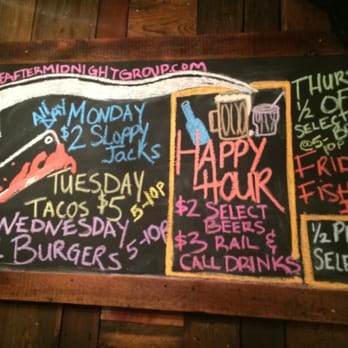 EAFTERMIDNIGHTGROUP.COM
All Day
MONDAY
$2 Sloppy
Jacks
TUESDAY
TACOS $5
5-10P
WEDNESDAY
BURGERS
5-10P
HAPPY
HOUR
$2 SELECT
BEERS
$3 RAIL &
CALL DRINKS
THURS
1/2 OF
SELEC
@5-
10P
FRID
FISH
1/2 P
SELE